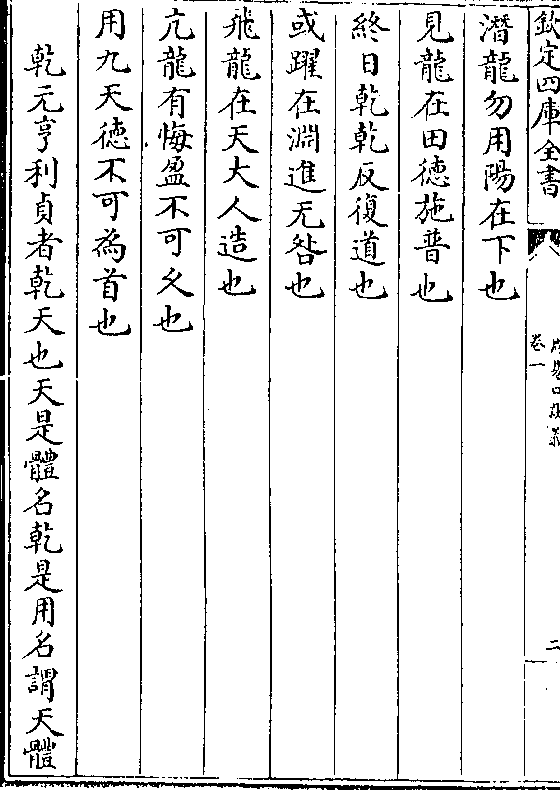 欽定四庫全書
卷一
二
潛龍勿用陽在下也
見龍在田德施普也
終日乾乾反復道也
或躍在淵進无咎也
飛龍在天大人造也
亢龍有悔盈不可久也
用九天德不可為首也
乾元亨利貞者乾天也天是體名乾是用名謂天體